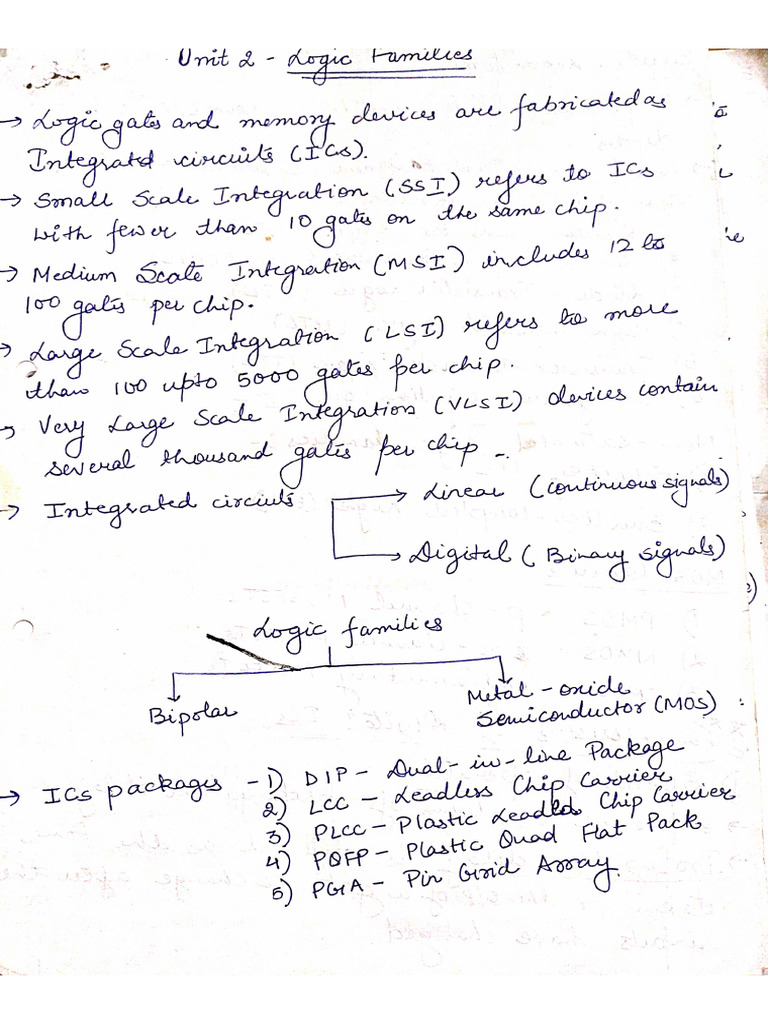 Unit 2 - Logic Families
→ Logic gates and memory devices are fabricated as
Integrated circuits (ICs).
→ Small Scale Integration (SSI) refers to ICs
with fewer than 10 gates on the same chip.
→ Medium Scale Integration (MSI) includes 12 to
100 gates per chip.
→ Large Scale Integration (LSI) refers to more
than 100 upto 5000 gates per chip.
→ Very Large Scale Integration (VLSI) devices contain
several thousand gates per chip -.
→ Integrated circiuts → Linear (continuous signals)
→ Digital (Binary signals)
Logic families
Bipolar
Metal-oxide
Semiconductor (MOS)
→ ICs packages - 1) DIP - Dual-in-line Package
2) LCC - Leadless Chip Carrier
3) PLCC - Plastic Leaded Chip Carrier
4) PQFP - Plastic Quad Flat Pack
5) PGA - Pin Grid Array.